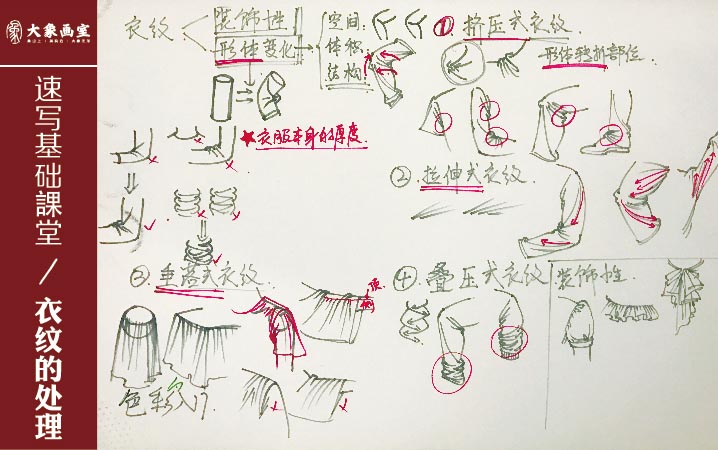 大象画室
速写基础課堂 / 衣纹的处理
衣纹
装饰性
形体变化
空间
体积
结构
衣服本身的厚度
① 挤压式衣纹
形体转折部位
② 拉伸式衣纹
③ 垂落式衣纹
顶
④ 叠压式衣纹
装饰性
色彩入门